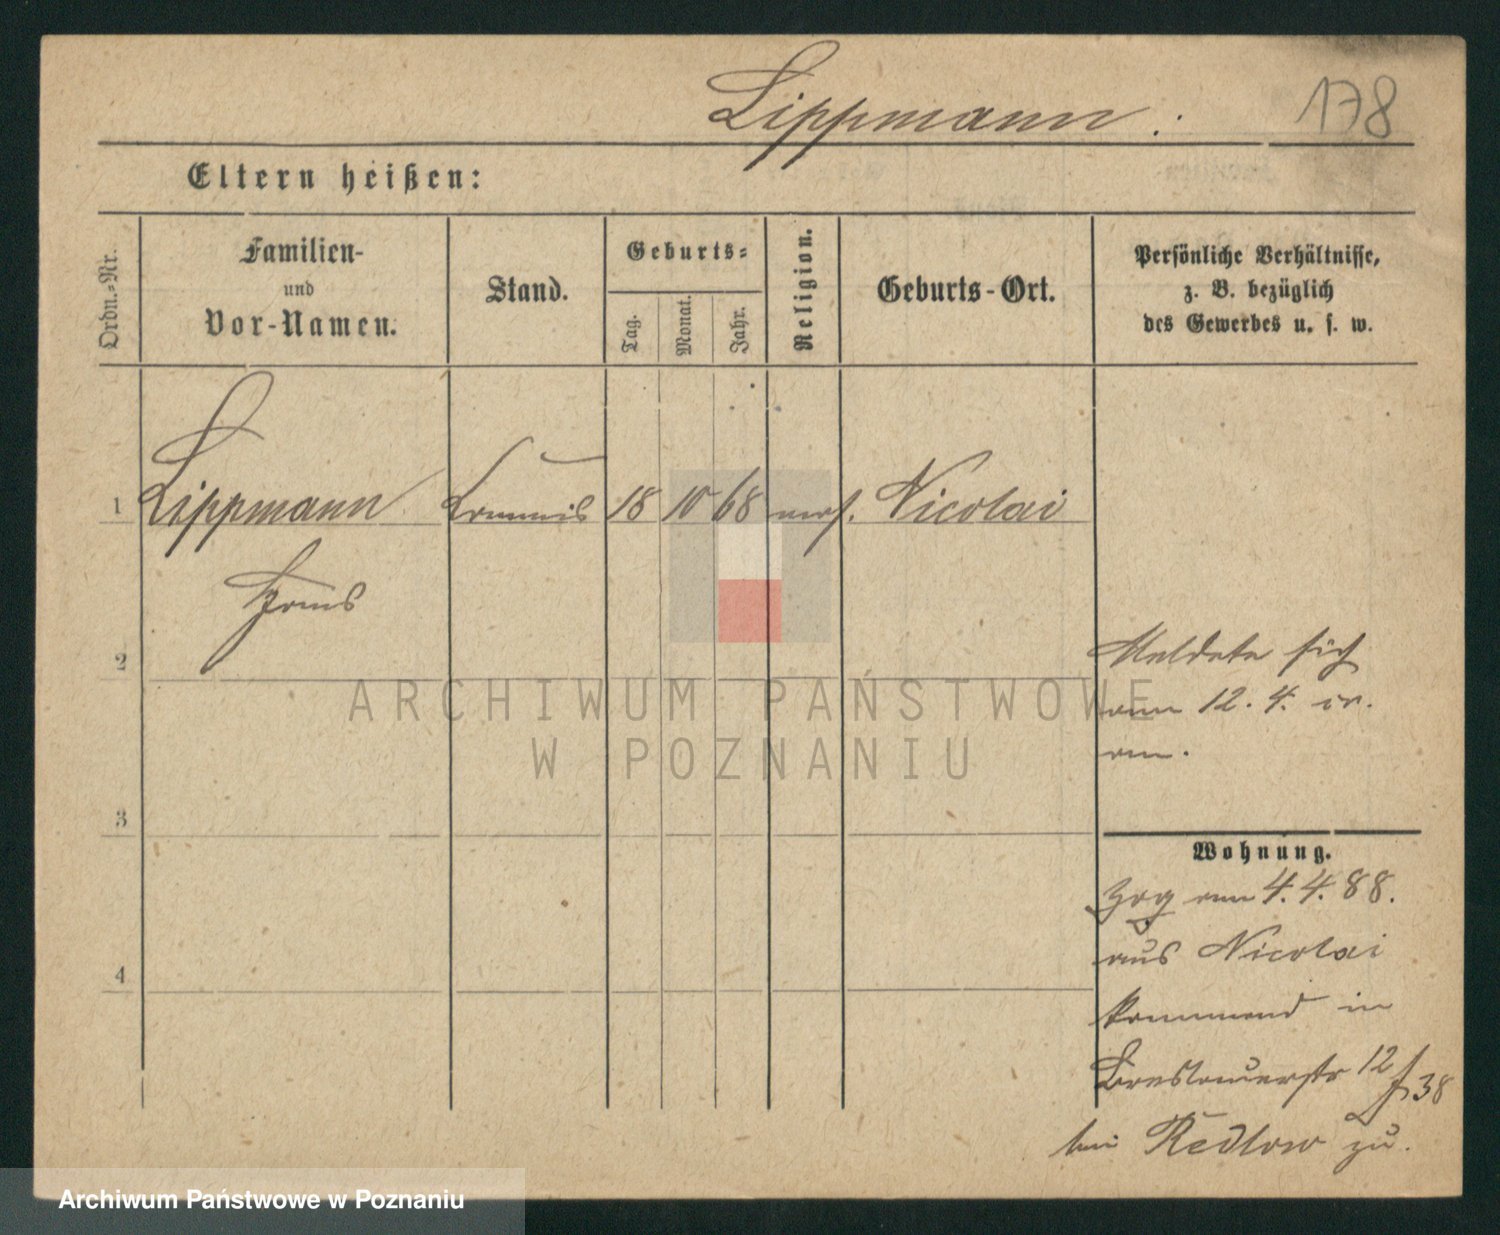 Lippmann.
178
Eltern heißen:
Ordn.-Nr.
Familien-
und
Vor-Namen.
Stand.
Geburts-
Tag.
Monat.
Jahr.
Religion.
Geburts-Ort.
Persönliche Verhältnisse,
z. B. bezüglich
des Gewerbes u. s. w.
1 Lippmann Commis 18 10 68 mos. Nicolai
2
3
4
Meldete sich
am 12. 4. cr.
an.
Wohnung.
Zog am 4. 4. 88.
aus Nicolai
kommend in
Breslauerstr 12/38
bei Redlow zu.
ARCHIWUM PAŃSTWOWE
W POZNANIU
Archiwum Państwowe w Poznaniu